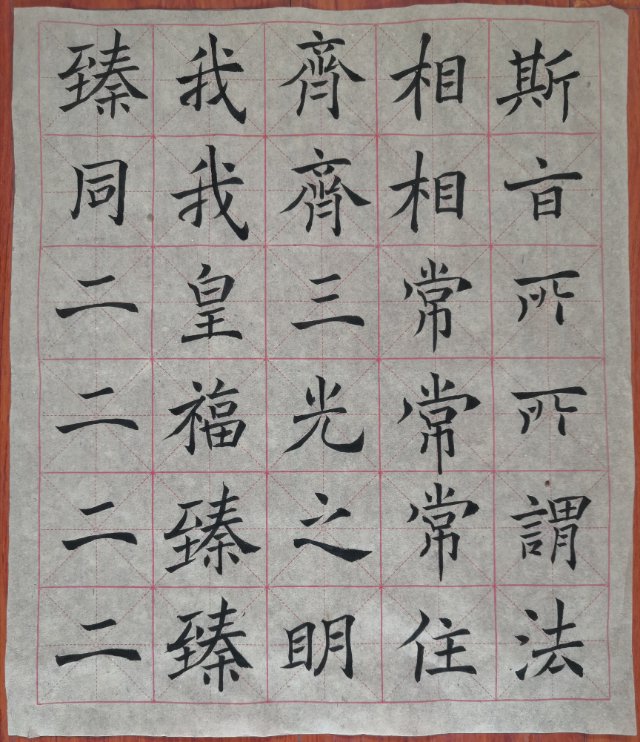 斯㫖所所謂法
相相常常常住
齊齊三光之明
我我皇福臻臻
臻同二二二二